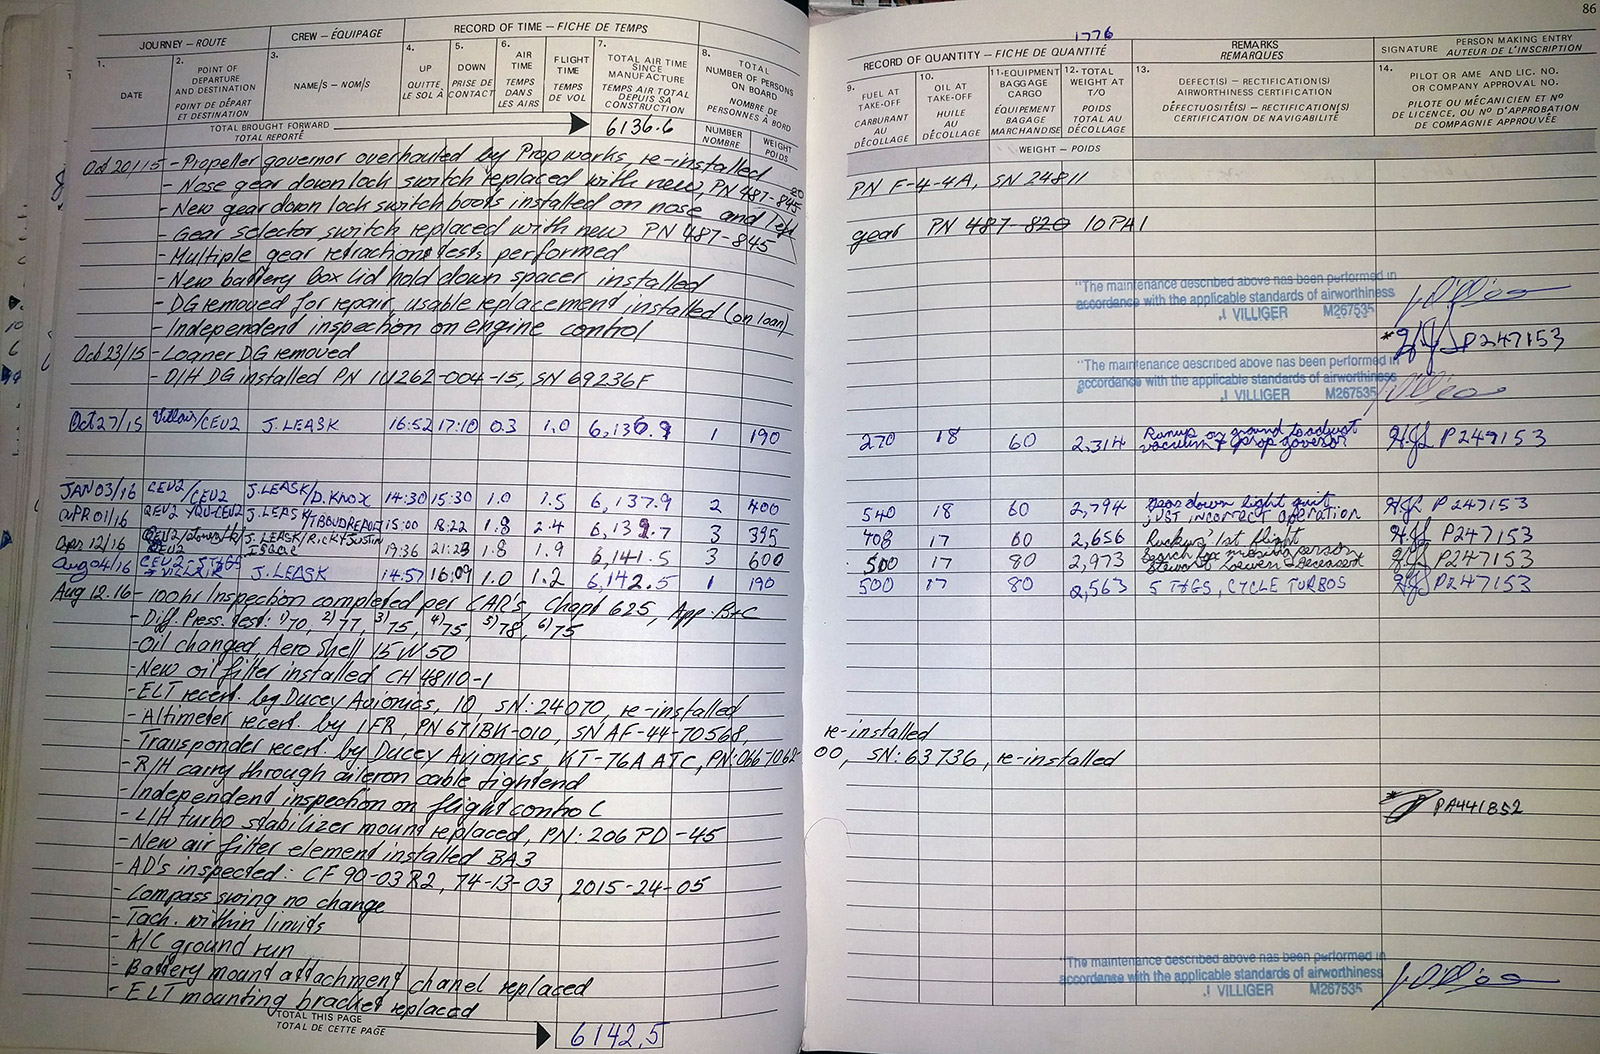 86
1776
JOURNEY – ROUTE
CREW – ÉQUIPAGE
RECORD OF TIME – FICHE DE TEMPS
1. DATE
2. POINT OF DEPARTURE AND DESTINATION POINT DE DÉPART ET DESTINATION
3. NAME/S – NOM/S
4. UP QUITTE LE SOL À
5. DOWN PRISE DE CONTACT
6. AIR TIME TEMPS DANS LES AIRS
FLIGHT TIME TEMPS DE VOL
7. TOTAL AIR TIME SINCE MANUFACTURE TEMPS AIR TOTAL DEPUIS SA CONSTRUCTION
8. TOTAL NUMBER OF PERSONS ON BOARD NOMBRE DE PERSONNES À BORD
NUMBER NOMBRE
WEIGHT POIDS
RECORD OF QUANTITY – FICHE DE QUANTITÉ
REMARKS REMARQUES
SIGNATURE PERSON MAKING ENTRY AUTEUR DE L'INSCRIPTION
9. FUEL AT TAKE-OFF CARBURANT AU DÉCOLLAGE
10. OIL AT TAKE-OFF HUILE AU DÉCOLLAGE
11. EQUIPMENT BAGGAGE CARGO ÉQUIPEMENT BAGAGE MARCHANDISE
12. TOTAL WEIGHT AT T/O POIDS TOTAL AU DÉCOLLAGE
13. DEFECT(S) – RECTIFICATION(S) AIRWORTHINESS CERTIFICATION DÉFECTUOSITÉ(S) – RECTIFICATION(S) CERTIFICATION DE NAVIGABILITÉ
14. PILOT OR AME AND LIC. NO. OR COMPANY APPROVAL NO. PILOTE OU MÉCANICIEN ET Nº DE LICENCE, OU Nº D'APPROBATION DE COMPAGNIE APPROUVÉE
WEIGHT – POIDS
TOTAL BROUGHT FORWARD TOTAL REPORTÉ 6136.6
Oct 20/15 - Propeller governor overhauled by Propworks, re-installed PN F-4-4A, SN 24811
- Nose gear down lock switch replaced with new, PN 487-845
- New gear down lock switch boots installed on nose and left gear PN 487-820 10PA1
- Gear selector switch replaced with new PN 487-845
- Multiple gear retractions tests performed
- New battery box lid hold down spacer installed
- DG removed for repair, usable replacement installed (on loan)
"The maintenance described above has been performed in
accordance with the applicable standards of airworthiness
J VILLIGER M267535
- Independent inspection on engine control * P247153
Oct 23/15 - Loaner DG removed
- O/H DG installed PN 1U262-004-15, SN 69236F
"The maintenance described above has been performed in
accordance with the applicable standards of airworthiness
J VILLIGER M267535
Oct 27/15 /CEV2 J. LEASK 16:52 17:10 0.3 1.0 6,136.9 1 190 270 18 60 2,314 Runup on ground to adjust vacuum + prop govenor P249153
JAN 03/16 CEV2/CEV2 J. LEASK/D. KNOX 14:30 15:30 1.0 1.5 6,137.9 2 400 540 18 60 2,794 Gear down light quit JUST INCORRECT OPERATION P 247153
APR 01/16 J. LEASK 15:00 1.8 2.4 6,139.7 3 395 408 17 60 2,656 1st flight P247153
Apr 12/16 J. LEASK/RICK+JUSTIN 19:36 21:23 1.8 1.9 6,141.5 3 600 500 17 80 2,973 Search for missing person P247153
Aug 04/16 J. LEASK 14:57 16:09 1.0 1.2 6,142.5 1 190 500 17 80 2,563 5 T&GS, CYCLE TURBOS P247153
Aug 12.16 - 100hr Inspection completed per CAR's, Chapt 625, App. B+C
- Diff. Press. test: 1)70, 2)77, 3)75, 4)75, 5)78, 6)75
- Oil changed AeroShell 15W50
- New oil filter installed CH48110-1
- ELT recert. by Ducey Avionics, 10, SN:24070, re-installed
- Altimeter recert. by IFR, PN 671BK-010, SN AF-44-70568 re-installed
- Transponder recert. by Ducey Avionics, KT-76A ATC, PN:066-1062-00, SN:63736, re-installed
- R/H carry through aileron cable tightend
- Independent inspection on flight control * PA441852
- L/H turbo stabilizer mount replaced, PN: 206 PD-45
- New air filter element installed BA3
- AD's inspected: CF 90-03R2, 74-13-03, 2015-24-05
- Compass swing no change
- Tach. within limits
- A/C ground run
- Battery mount attachment chanel replaced
- ELT mounting bracket replaced
"The maintenance described above has been performed in
accordance with the applicable standards of airworthiness
J VILLIGER M267535
TOTAL THIS PAGE TOTAL DE CETTE PAGE 6142.5